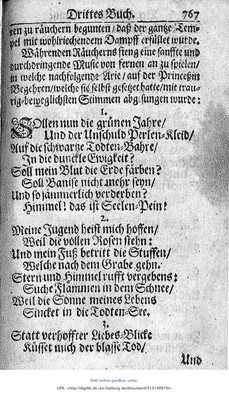 Drittes Buch. 767
ren zu räuchern begunten/ daß der gantze Tem-
pel mit wohlriechendem Dampff erfüllet wurde.
Währenden Räucherns fieng eine sanffte und
durchdringende Music von fernen an zu spielen/
in welche nachfolgende Arie/ auf der Princeßin
Begehren/ welche sie selbst gesetzet hatte/ mit trau-
rig-beweglichsten Stimmen abgesungen wurde:
1.
SOllen nun die grünen Jahre/
Und der Unschuld Perlen-Kleid/
Auf die schwartze Todten-Bahre/
In die dunckle Ewigkeit?
Soll mein Blut die Erde färben?
Soll Banise nicht mehr seyn/
Und so jämmerlich verderben?
Himmel! das ist Seelen-Pein!
2.
Meine Jugend heist mich hoffen/
Weil die vollen Rosen stehn:
Und mein Fuß betritt die Stuffen/
Welche nach dem Grabe gehn.
Stern und Himmel rufft vergebens:
Suche Flammen in dem Schnee/
Weil die Sonne meines Lebens
Sincket in die Todten-See.
3.
Statt verhoffter Liebes-Blicke
Küsset mich der blasse Tod/
Und
Bild online greifbar unter
URL <http://digilib.ub.uni-freiburg.de/document/313140979/>